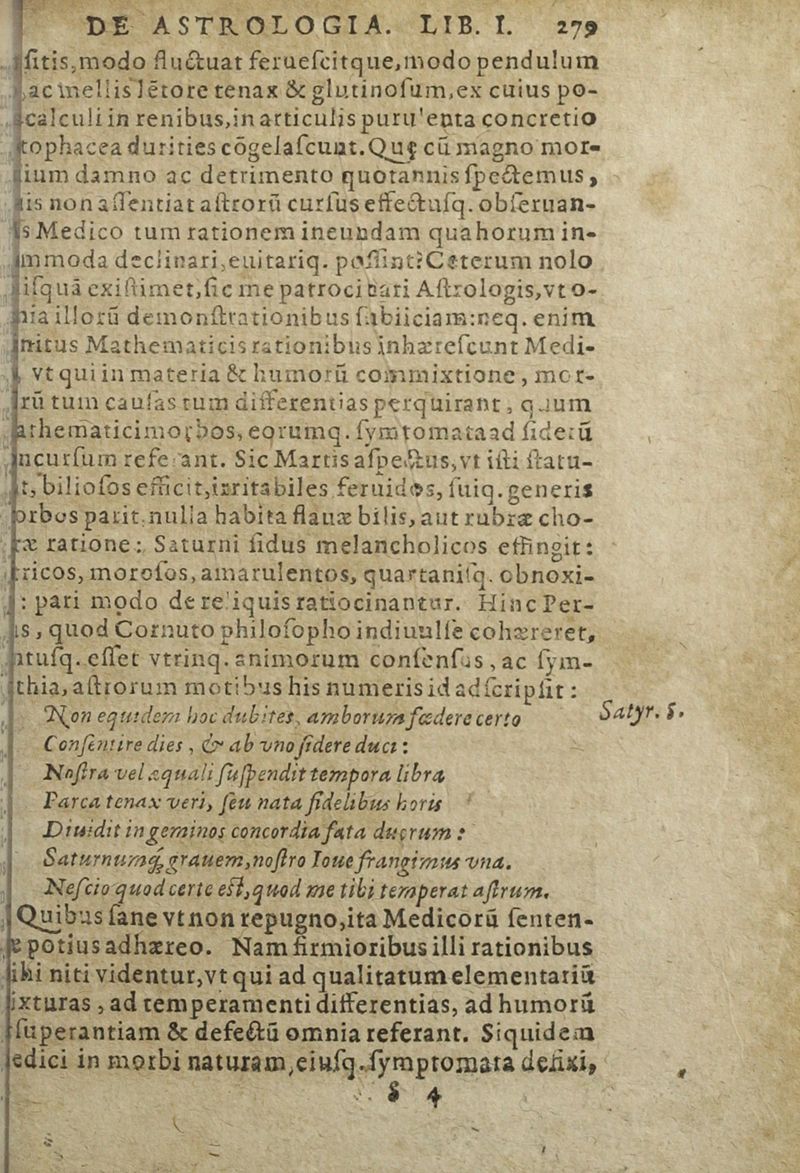 DE ASTROLOGIA. LIB. I. 279
ſitis,modo fluctuat feruefcitque,modo pendulum
ac mellis lẽtore tenax & glutinoſum,ex cuius po-
calculi in renibus,in articulis puru'enta concretio
tophacea durities cõgelaſcunt.Quę cũ magno mor-
ium damno ac detrimento quotannis ſpectemus,
is non aſſentiat aſtrorũ curſus effectuſq. obſeruan-
s Medico tum rationem ineundam qua horum in-
mmoda declinari,euitariq. poſſint?Cęterum nolo
iſquã exiſtimet,ſic me patrocinari Aſtrologis,vt o-
nia illorũ demonſtrationibus ſubiiciam:neq. enim
nitus Mathematicis rationibus inhærefcunt Medi-
, vt qui in materia & humorũ commixtione, mor-
rũ tum cauſas tum differentias perquirant, quum
athematici morbos, eorumq. ſymtomata ad ſiderũ
incurſum referant. Sic Martis aſpectus,vt iſti ſtatu-
t, bilioſos efficit,irritabiles feruidos, ſuiq. generis
orbos parit, nulla habita flauæ bilis, aut rubræ cho-
ræ ratione: Saturni ſidus melancholicos effingit:
tricos, moroſos, amarulentos, quartaniſq. obnoxi-
: pari modo de re'iquis ratiocinantur. Hinc Per-
is, quod Cornuto philoſopho indiuulſe cohæreret,
ntuſq. eſſet vtrinq. animorum conſenſus, ac ſym-
thia, aſtrorum motibus his numeris id adſcripſit:
Non equidem hoc dubites, amborum fœdere certo Satyr. 5.
Conſentire dies, & ab vno ſidere duci:
Noſtra vel æquali ſuſpendit tempora libra
Parca tenax veri, ſeu nata fidelibus horis
Diuidit in geminos concordia fata duorum:
Saturnumq́; grauem,noſtro Ioue frangimus vna.
Neſcio quod certe eſt,quod me tibi temperat aſtrum.
Quibus ſane vt non repugno,ita Medicorũ ſenten-
æ potius adhæreo. Nam firmioribus illi rationibus
ihi niti videntur,vt qui ad qualitatum elementariũ
ixturas, ad temperamenti differentias, ad humorũ
ſuperantiam & defectũ omnia referant. Siquidem
edici in morbi naturam,eiuſq. ſymptomata defixi,
S 4